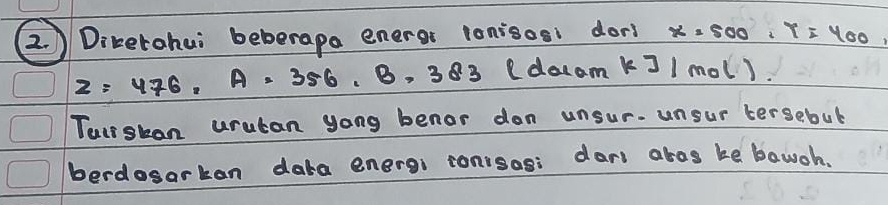 2. Diketahui beberapa energi ionisasi dari x = 500, Y = 400,
Z = 476, A = 356, B = 383 (dalam kJ/mol).
Tuliskan urutan yang benar dan unsur-unsur tersebut
berdasarkan data energi ionisasi dari atas ke bawah.